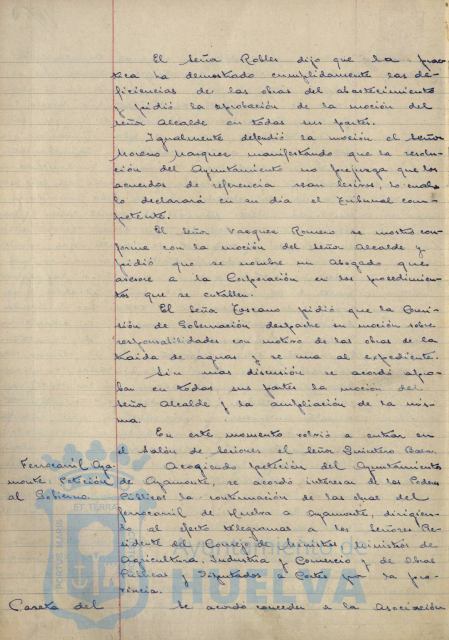 El Señor Robles dijo que la prac-
tica ha demostrado cumplidamente las de-
ficiencias de las obras del abastecimiento
y pidió la aprobación de la moción del
Señor Alcalde en todas sus partes.
Igualmente defendió la moción el Señor
Moreno Marquez manifestando que la resolu-
ción del Ayuntamiento no prejuzga que los
acuerdos de referencia sean lesivos, lo cual
lo declarará en su día el Tribunal com-
petente.
El Señor Vazquez Romero se mostro con-
forme con la moción del Señor Alcalde y
pidió que se nombre un Abogado que
asesore a la Corporación en los procedimien-
tos que se entablen.
El Señor Toscano pidió que la Comi-
sión de Gobernación despache su moción sobre
responsabilidades con motivo de las obras de la
traida de aguas y se una al expediente.
Sin mas discusión se acordó apro-
bar en todas sus partes la moción del
Señor Alcalde y la ampliación de la mis-
ma.
En este momento volvió a entrar en
el Salón de Sesiones el Señor Quintero Baez.
Ferrocarril Aya-
monte. Petición
al Gobierno.
Acogiendo petición del Ayuntamiento
de Ayamonte, se acordó interesar de los Poderes
Públicos la continuación de las obras del
ferrocarril de Huelva a Ayamonte, dirigien-
do al efecto telegramas a los Señores Pre-
sidente del Consejo de Ministros, Ministros de
Agricultura, Industria y Comercio y de Obras
Públicas y Diputados a Cortes por la pro-
vincia.
Caseta del
Se acordó conceder a la Asociación
PORTUS MARIS ET TERRAE
Ayuntamiento de
HUELVA